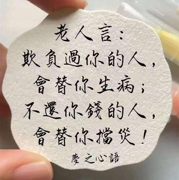 老人言：
欺負過你的人，
會替你生病；
不還你錢的人，
會替你擋災！
之心語